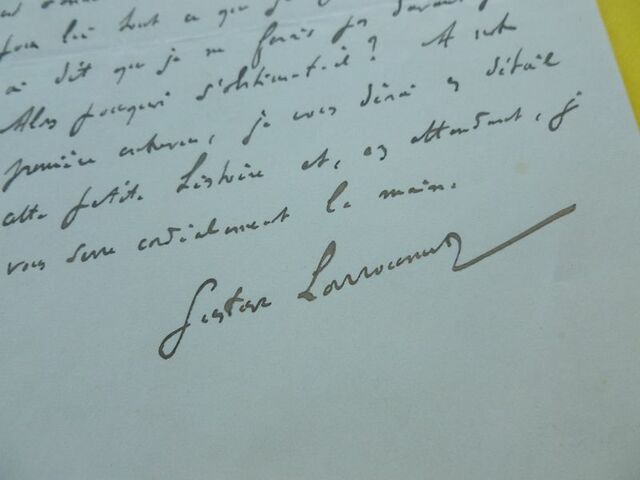 pour lui tout ce que j
ai dit que je ne ferais pas davan
Alors pourquoi s'obstine-t-il ? A notre
première entrevue, je vous dirai en détail
cette petite histoire et, en attendant, je
vous serre cordialement la main.
Gustave Larroumet